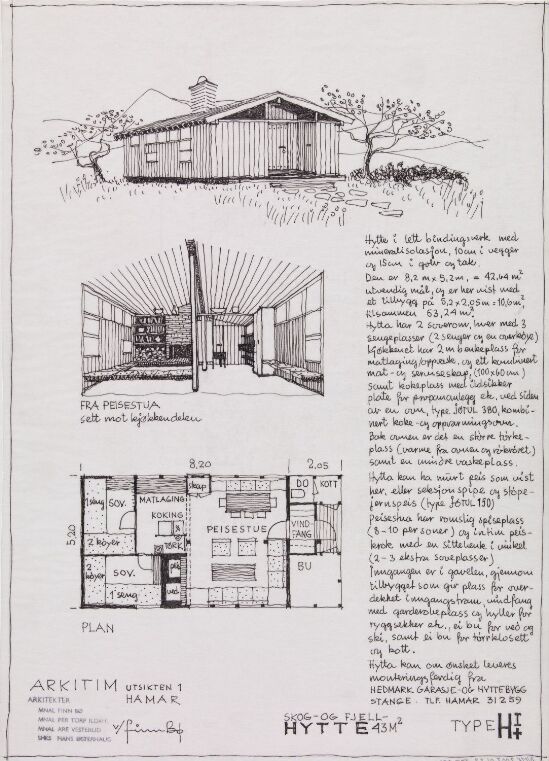 Hytte i lett bindingsverk med
mineralisolasjon, 10cm i vegger
og 15cm i golv og tak.
Den er 8,2 m x 5,2m, = 42,64 m²
utvendig mål, og er her vist med
et tilbygg på 5,2 x 2,05m = 10,6m²,
tilsammen 53,24 m².
Hytta har 2 soverom, hver med 3
sengeplasser (2 senger og en overkøye)
Kjøkkenet har 2 m benkeplass for
matlaging/oppvask, og ett kombinert
mat- og serviseskap, (100x60cm)
Samt kokeplass med ildsikker
plate for propananlegg etc. ved siden
av en ovn, type JØTUL 380, kombi-
nert koke- og oppvarmingsovn.
Bak ovnen er det en større tørke-
plass (varme fra ovnen og røkrøret)
samt en mindre vaskeplass.
Hytta kan ha murt peis som vist
her, eller seksjonspipe og støpe-
jernspeis (type JØTUL 150)
Peisestua har romslig spiseplass
(8-10 personer) og intim peis-
krok med en sittebenk i vinkel
(2-3 ekstra soveplasser)
Inngangen er i gavelen, gjennom
tilbygget som gir plass for over-
dekket inngangstram, vindfang
med garderobeplass og hyller for
ryggsekker etc., ei bu for ved og
ski, samt ei bu for tørrklosett
og kott.
Hytta kan om ønsket leveres
monteringsferdig fra
HEDMARK GARASJE- OG HYTTEBYGG
STANGE. TLF. HAMAR 31259
FRA PEISESTUA
sett mot kjøkkendelen
8,20
2,05
5,20
1 seng
SOV.
2 køyer
MATLAGING
KOKING
TØRK
skap
PEISESTUE
DO
KOTT
VIND-
FANG
BU
2 køyer
SOV.
1 seng
peis
ved
PLAN
ARKITIM UTSIKTEN 1
HAMAR
ARKITEKTER
MNAL FINN BØ
MNAL PER TORP
MNAL ARE VESTERLID
v/ Finn Bø
SKOG- OG FJELL-
HYTTE 43M²
TYPE H